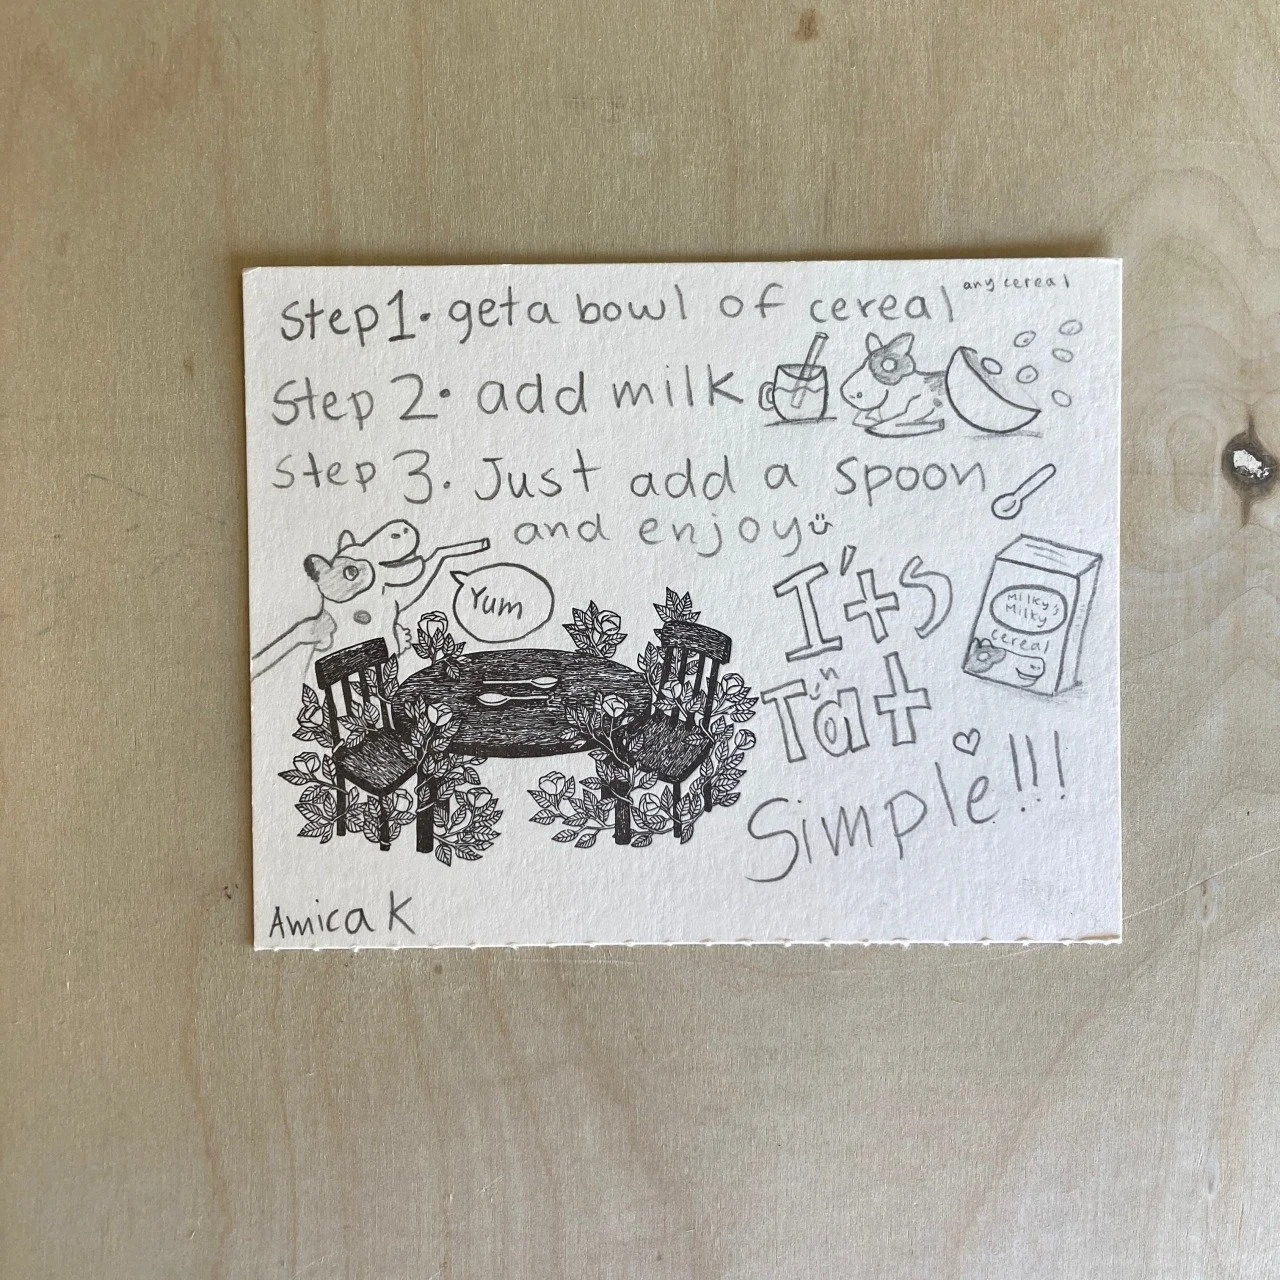 Step 1. get a bowl of cereal any cereal
Step 2. add milk
Step 3. Just add a spoon
and enjoy
Yum
I'ts
Milky's
Milky
cereal
Simple!!!
Amica K